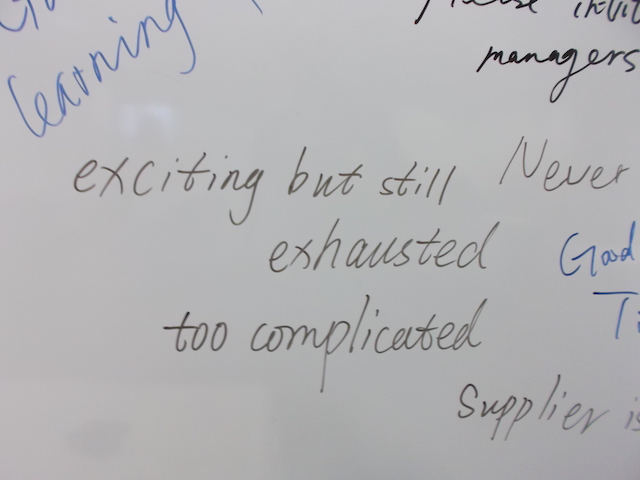 learning
Please
managers
exciting but still
exhausted
too complicated
Never
Good
Supplier is